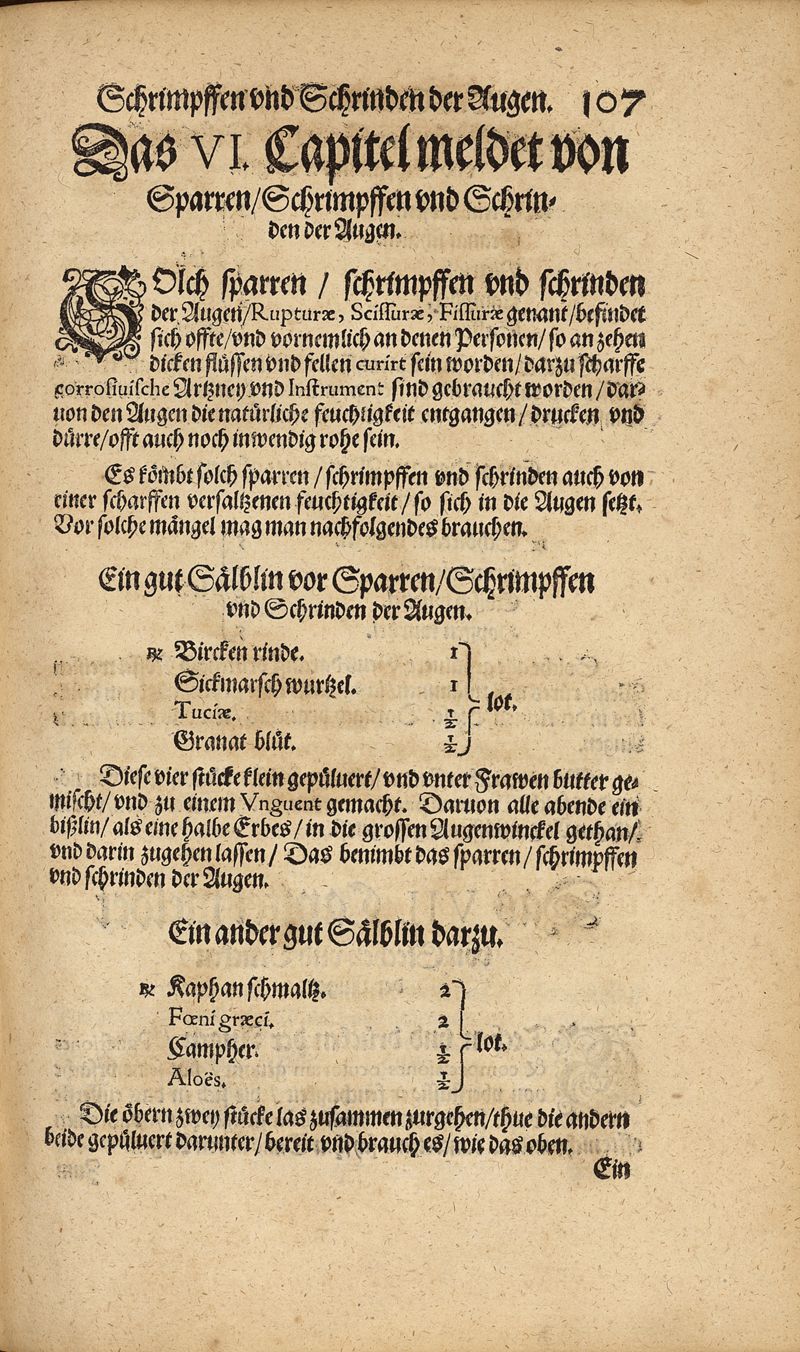 Schrimpffen vnd Schrinden der Augen. 107
Das VI. Capitel meldet von
Sparren/Schrimpffen vnd Schrin-
den der Augen.
SOlch sparren / schrimpffen vnd schrinden
der Augen/Rupturæ, Scissuræ, Fissuræ genant/befindet
sich offte/vnd vornemlich an denen Personen/so an zehen
dicken flüssen vnd fellen curirt sein worden/darzu scharffe
corrosiuische Artzney vnd Instrument sind gebraucht worden/dar-
uon den Augen die natürliche feuchtigkeit entgangen/drucken vnd
dürre/offt auch noch inwendig rohe sein.
Es kömbt solch sparren/schrimpffen vnd schrinden auch von
einer scharffen versaltzenen feuchtigkeit/so sich in die Augen setzt.
Vor solche mängel mag man nachfolgendes brauchen.
Ein gut Sälblin vor Sparren/Schrimpffen
vnd Schrinden der Augen.
℞ Bircken rinde. 1
Sickmarsch wurtzel. 1
Tuciæ. ½ lot.
Granat blüt. ½
Diese vier stücke klein gepüluert/vnd vnter Frawen butter ge-
mischt/vnd zu einem Vnguent gemacht. Daruon alle abende ein
bißlin/als eine halbe Erbes/in die grossen Augenwinckel gethan/
vnd darin zugehen lassen/Das benimbt das sparren/schrimpffen
vnd schrinden der Augen.
Ein ander gut Sälblin darzu.
℞ Kaphan schmaltz. 2
Fœni græci. 2
Campher. ½ lot.
Aloës. ½
Die öbern zwey stücke las zusammen zurgehen/thue die andern
beide gepüluert darunter/bereit vnd brauch es/wie das oben.
Ein